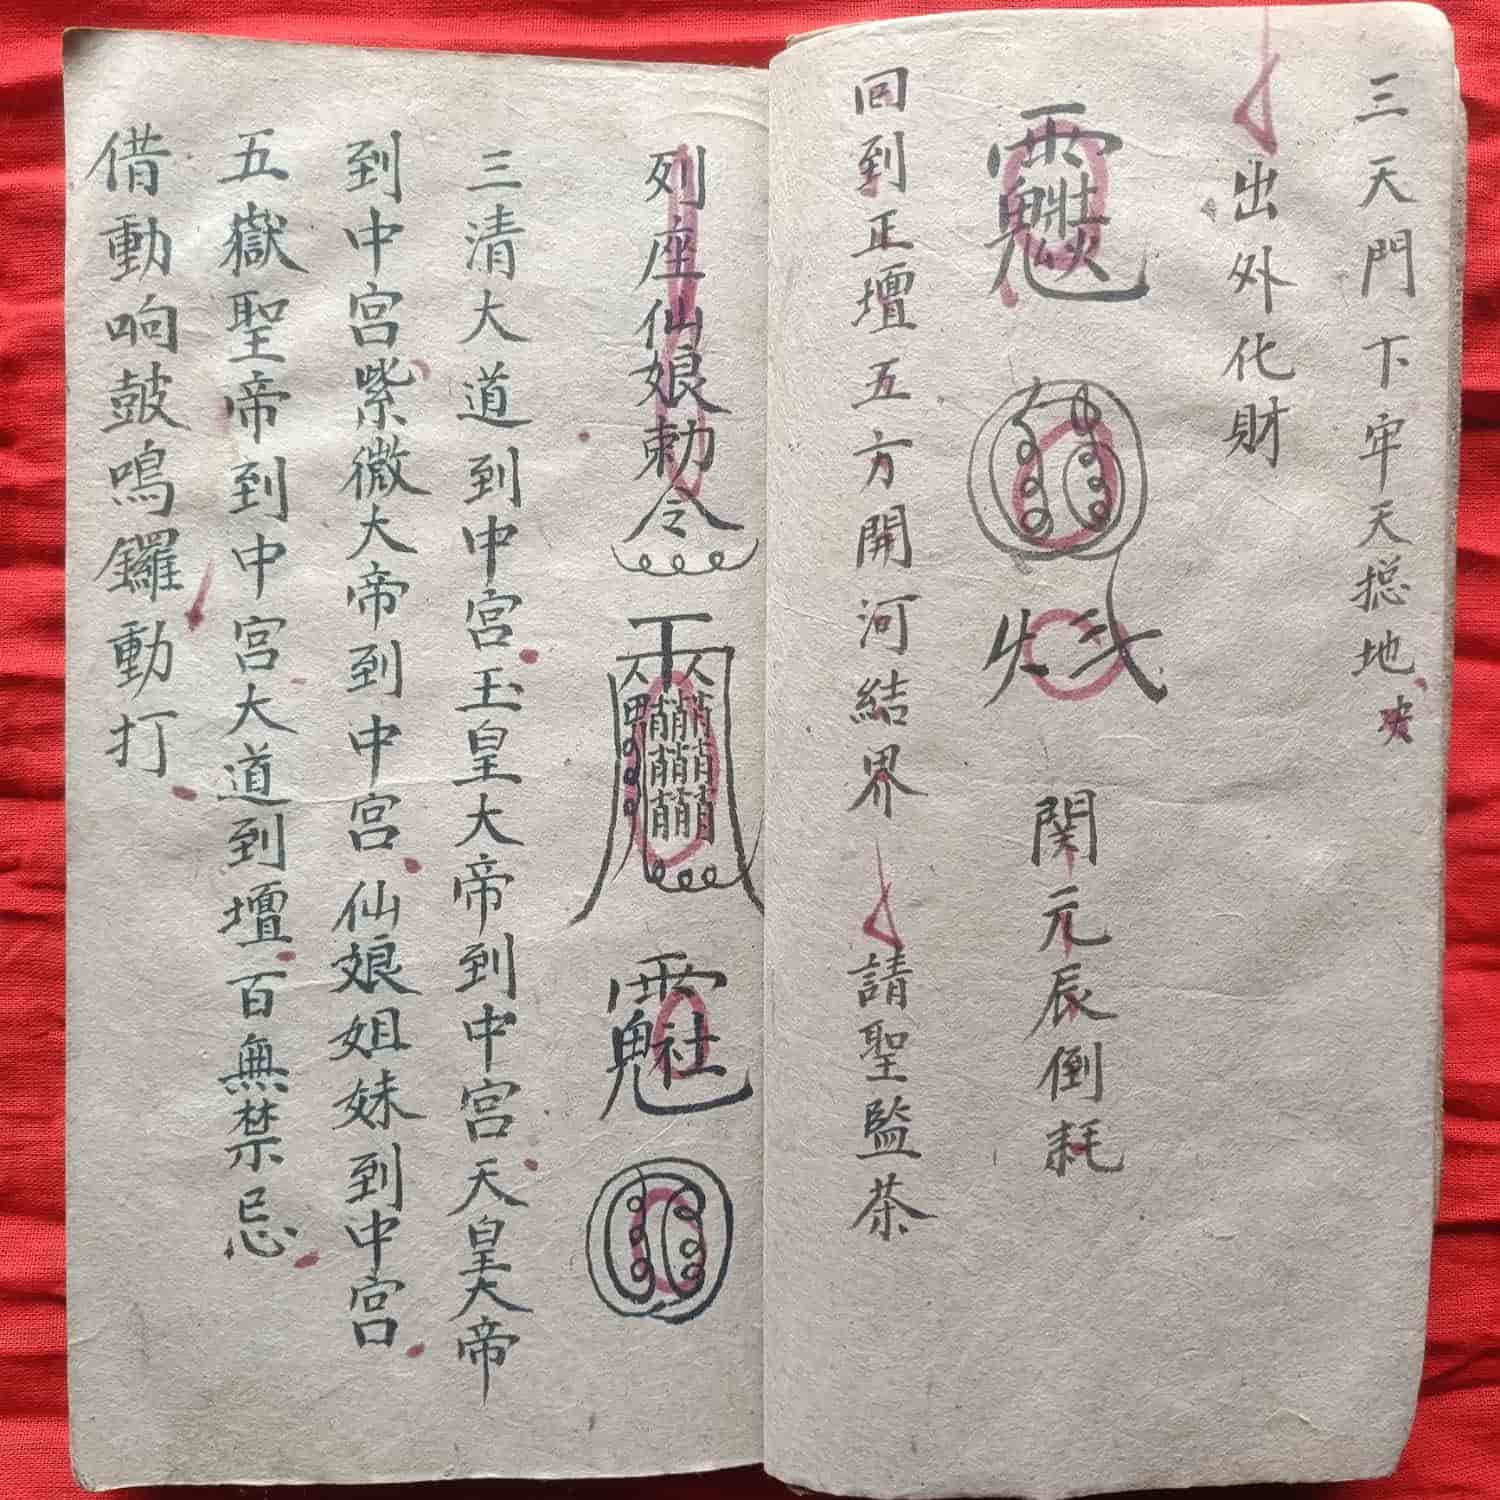 三天門下牢天捴地
出外化財
関元辰倒耗
回到正壇五方開河結界
請聖監茶
列座仙娘勅令
三清大道到中宮玉皇大帝到中宮天皇大帝
到中宮紫微大帝到中宮仙娘姐妹到中宮
五嶽聖帝到中宮大道到壇百無禁忌
借動响鼓鳴鑼動打